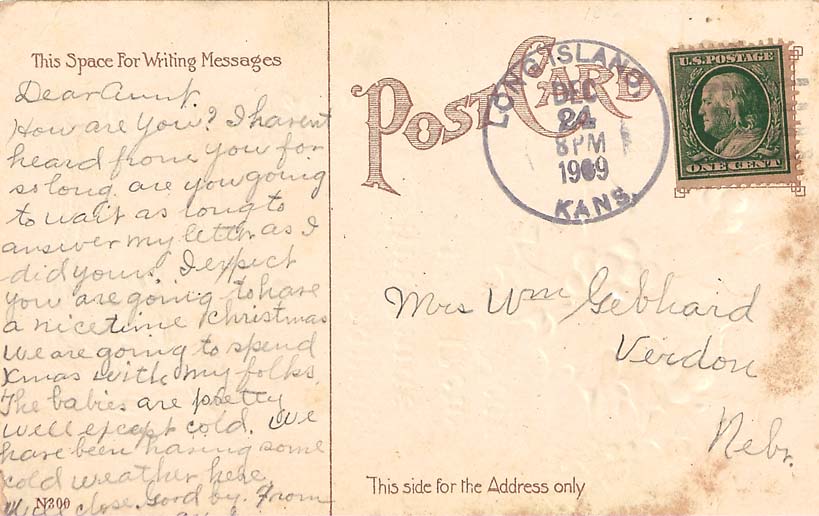 This Space For Writing Messages
Dear Aunt.
How are you? I havent
heard from you for
so long. are you going
to wait as long to
answer my letter as I
did yours? I expect
you are going to have
a nice time Christmas
We are going to spend
Xmas with my folks.
The babies are pretty
well except cold. We
have been having some
cold weather here
Will close. Good by. From
N300
POST CARD
LONG ISLAND
DEC
24
8 PM
1909
KANS.
U.S. POSTAGE
ONE CENT
Mrs Wm Gebhard
Verdon
Nebr.
This side for the Address only